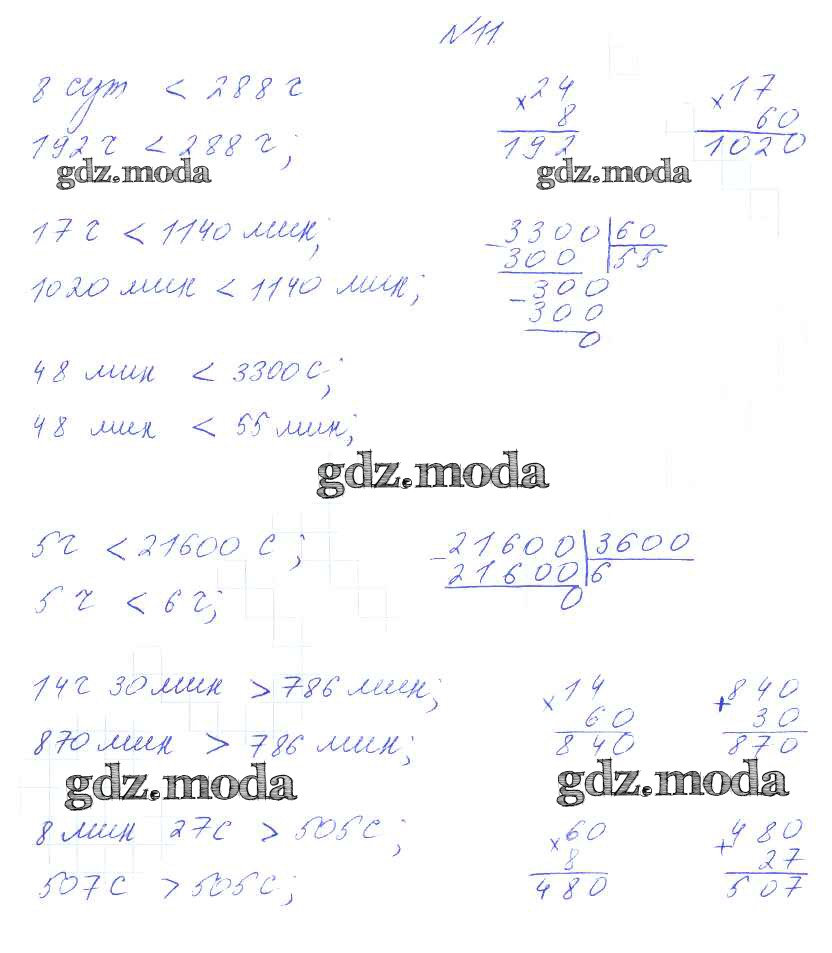 №11.
8 сут < 288 ч
192 ч < 288 ч;
× 24
8
192
× 17
60
1020
gdz.moda
gdz.moda
17 ч < 1140 мин;
1020 мин < 1140 мин;
− 3300 | 60
300 | 55
− 300
300
0
48 мин < 3300 с;
48 мин < 55 мин;
gdz.moda
5 ч < 21600 с;
5 ч < 6 ч;
− 21600 | 3600
21600 | 6
0
14 ч 30 мин > 786 мин;
870 мин > 786 мин;
× 14
60
840
+ 840
30
870
gdz.moda
gdz.moda
8 мин 27 с > 505 с;
507 с > 505 с;
× 60
8
480
+ 480
27
507